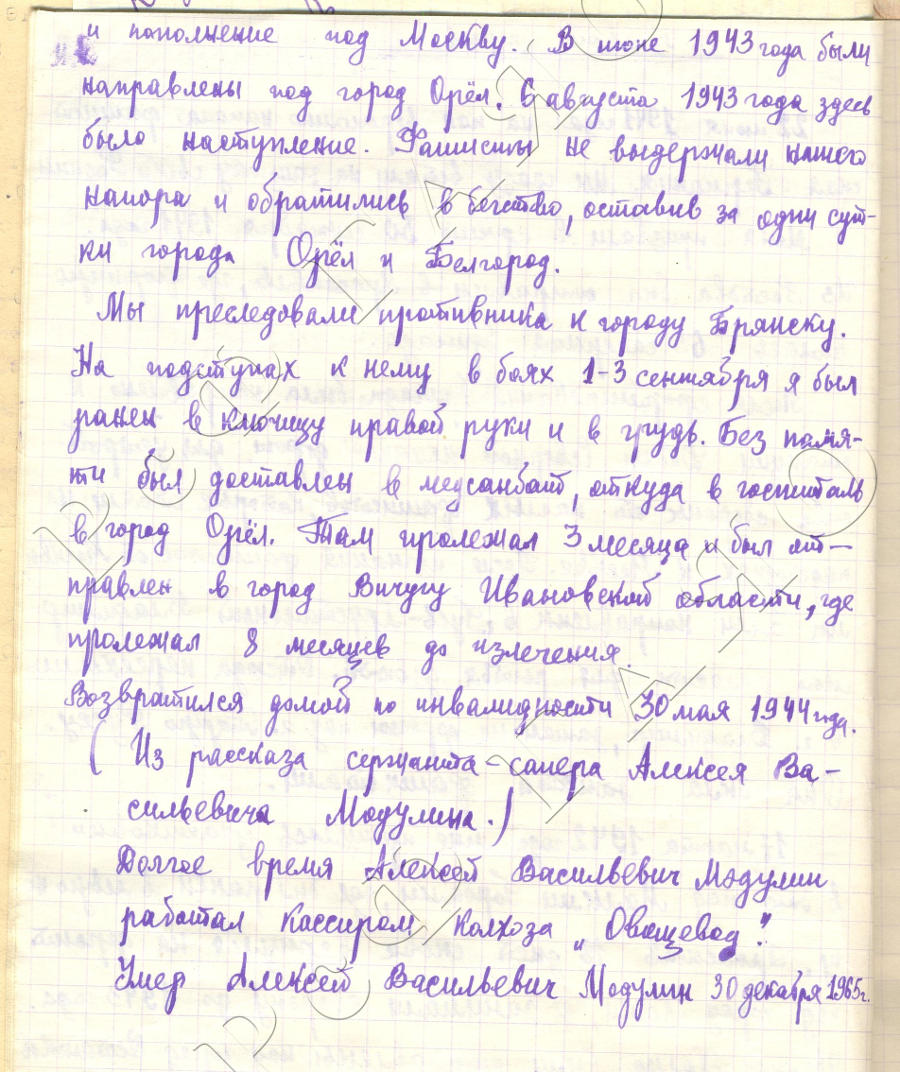 и пополнение под Москву. В июне 1943 года были
направлены под город Орёл. 6 августа 1943 года здесь
было наступление. Фашисты не выдержали нашего
напора и обратились в бегство, оставив за одни сут-
ки города Орёл и Белгород.
Мы преследовали противника к городу Брянску.
На подступах к нему в боях 1-3 сентября я был
ранен в ключицу правой руки и в грудь. Без памя-
ти был доставлен в медсанбат, откуда в госпиталь
в город Орёл. Там пролежал 3 месяца и был от-
правлен в город Вичугу Ивановской области, где
пролежал 8 месяцев до излечения.
Возвратился домой по инвалидности 30 мая 1944 года.
( Из рассказа сержанта-сапера Алексея Ва-
сильевича Модулина.)
Долгое время Алексей Васильевич Модулин
работал кассиром колхоза „Овощевод".
Умер Алексей Васильевич Модулин 30 декабря 1965г.